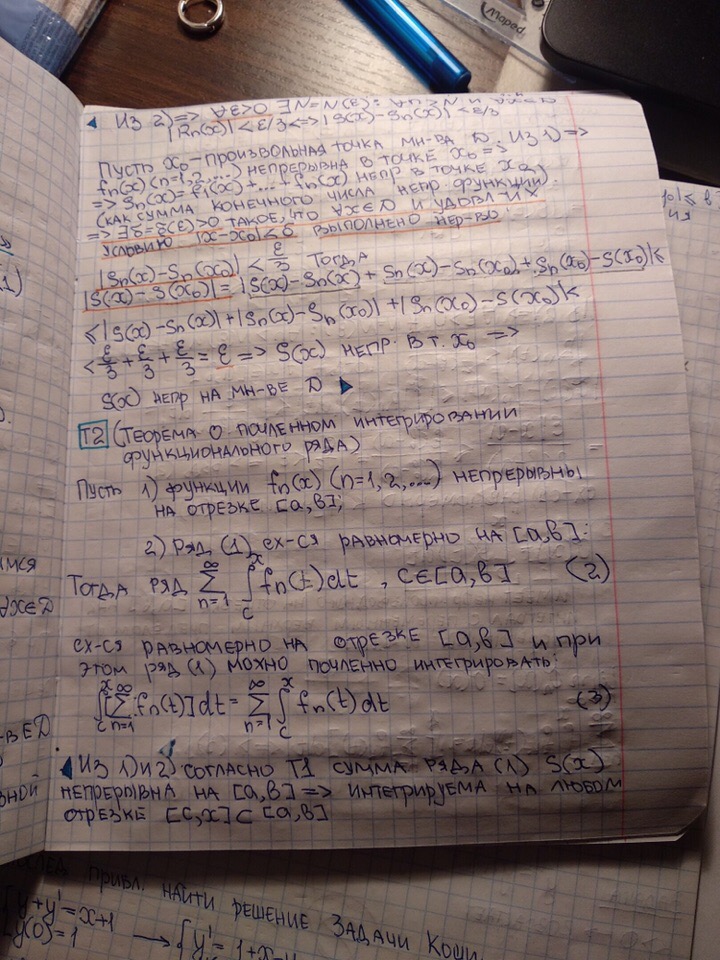 Из 2) => ∀ε>0 ∃N=N(ε): ∀n≥N и ∀x∈D
|Rn(x)|<ε/3 <=> |S(x)-Sn(x)|<ε/3
Пусть x₀ - произвольная точка мн-ва D. Из 1) =>
fn(x) (n=1,2,...) непрерывна в точке x₀ =>
=> Sn(x)=f₁(x)+...+fn(x) непр в точке x₀
(как сумма конечного числа непр. функции)
=> ∃δ=δ(ε)>0 такое, что ∀x∈D и удовл-их
условию |x-x₀|<δ выполнено нер-во
|Sn(x)-Sn(x₀)|<ε/3 Тогда
|S(x)-S(x₀)|=|S(x)-Sn(x)+Sn(x)-Sn(x₀)+Sn(x₀)-S(x₀)|≤
≤|S(x)-Sn(x)|+|Sn(x)-Sn(x₀)|+|Sn(x₀)-S(x₀)|<
<ε/3+ε/3+ε/3=ε => S(x) непр. в т. x₀ =>
S(x) непр на мн-ве D
Т2 (Теорема о почленном интегрировании
функционального ряда)
Пусть 1) функции fn(x) (n=1,2,...) непрерывны
на отрезке [a,b];
2) Ряд (1) сх-ся равномерно на [a,b].
Тогда ряд ∑_{n=1}^{∞} ∫_c^x fn(t)dt, c∈[a,b] (2)
сх-ся равномерно на отрезке [a,b] и при
этом ряд (1) можно почленно интегрировать:
∫_c^x [∑_{n=1}^{∞} fn(t)]dt = ∑_{n=1}^{∞} ∫_c^x fn(t)dt (3)
Из 1) и 2) согласно Т1 сумма ряда (1) S(x)
непрерывна на [a,b] => интегрируема на любом
отрезке [c,x]⊂[a,b]
1)
∀x∈D
-в∈D
вной
привл. найти решение задачи Коши
{y+y'=x+1
y(0)=1 → {y'=1+x-y
Maped